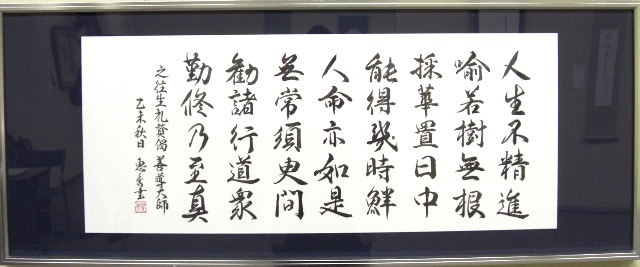 人生不精進
喩若樹無根
採華置日中
能得幾時鮮
人命亦如是
無常須臾間
勧諸行道衆
勤修乃至真
之往生礼賛偈 善導大師
乙未秋日 惠